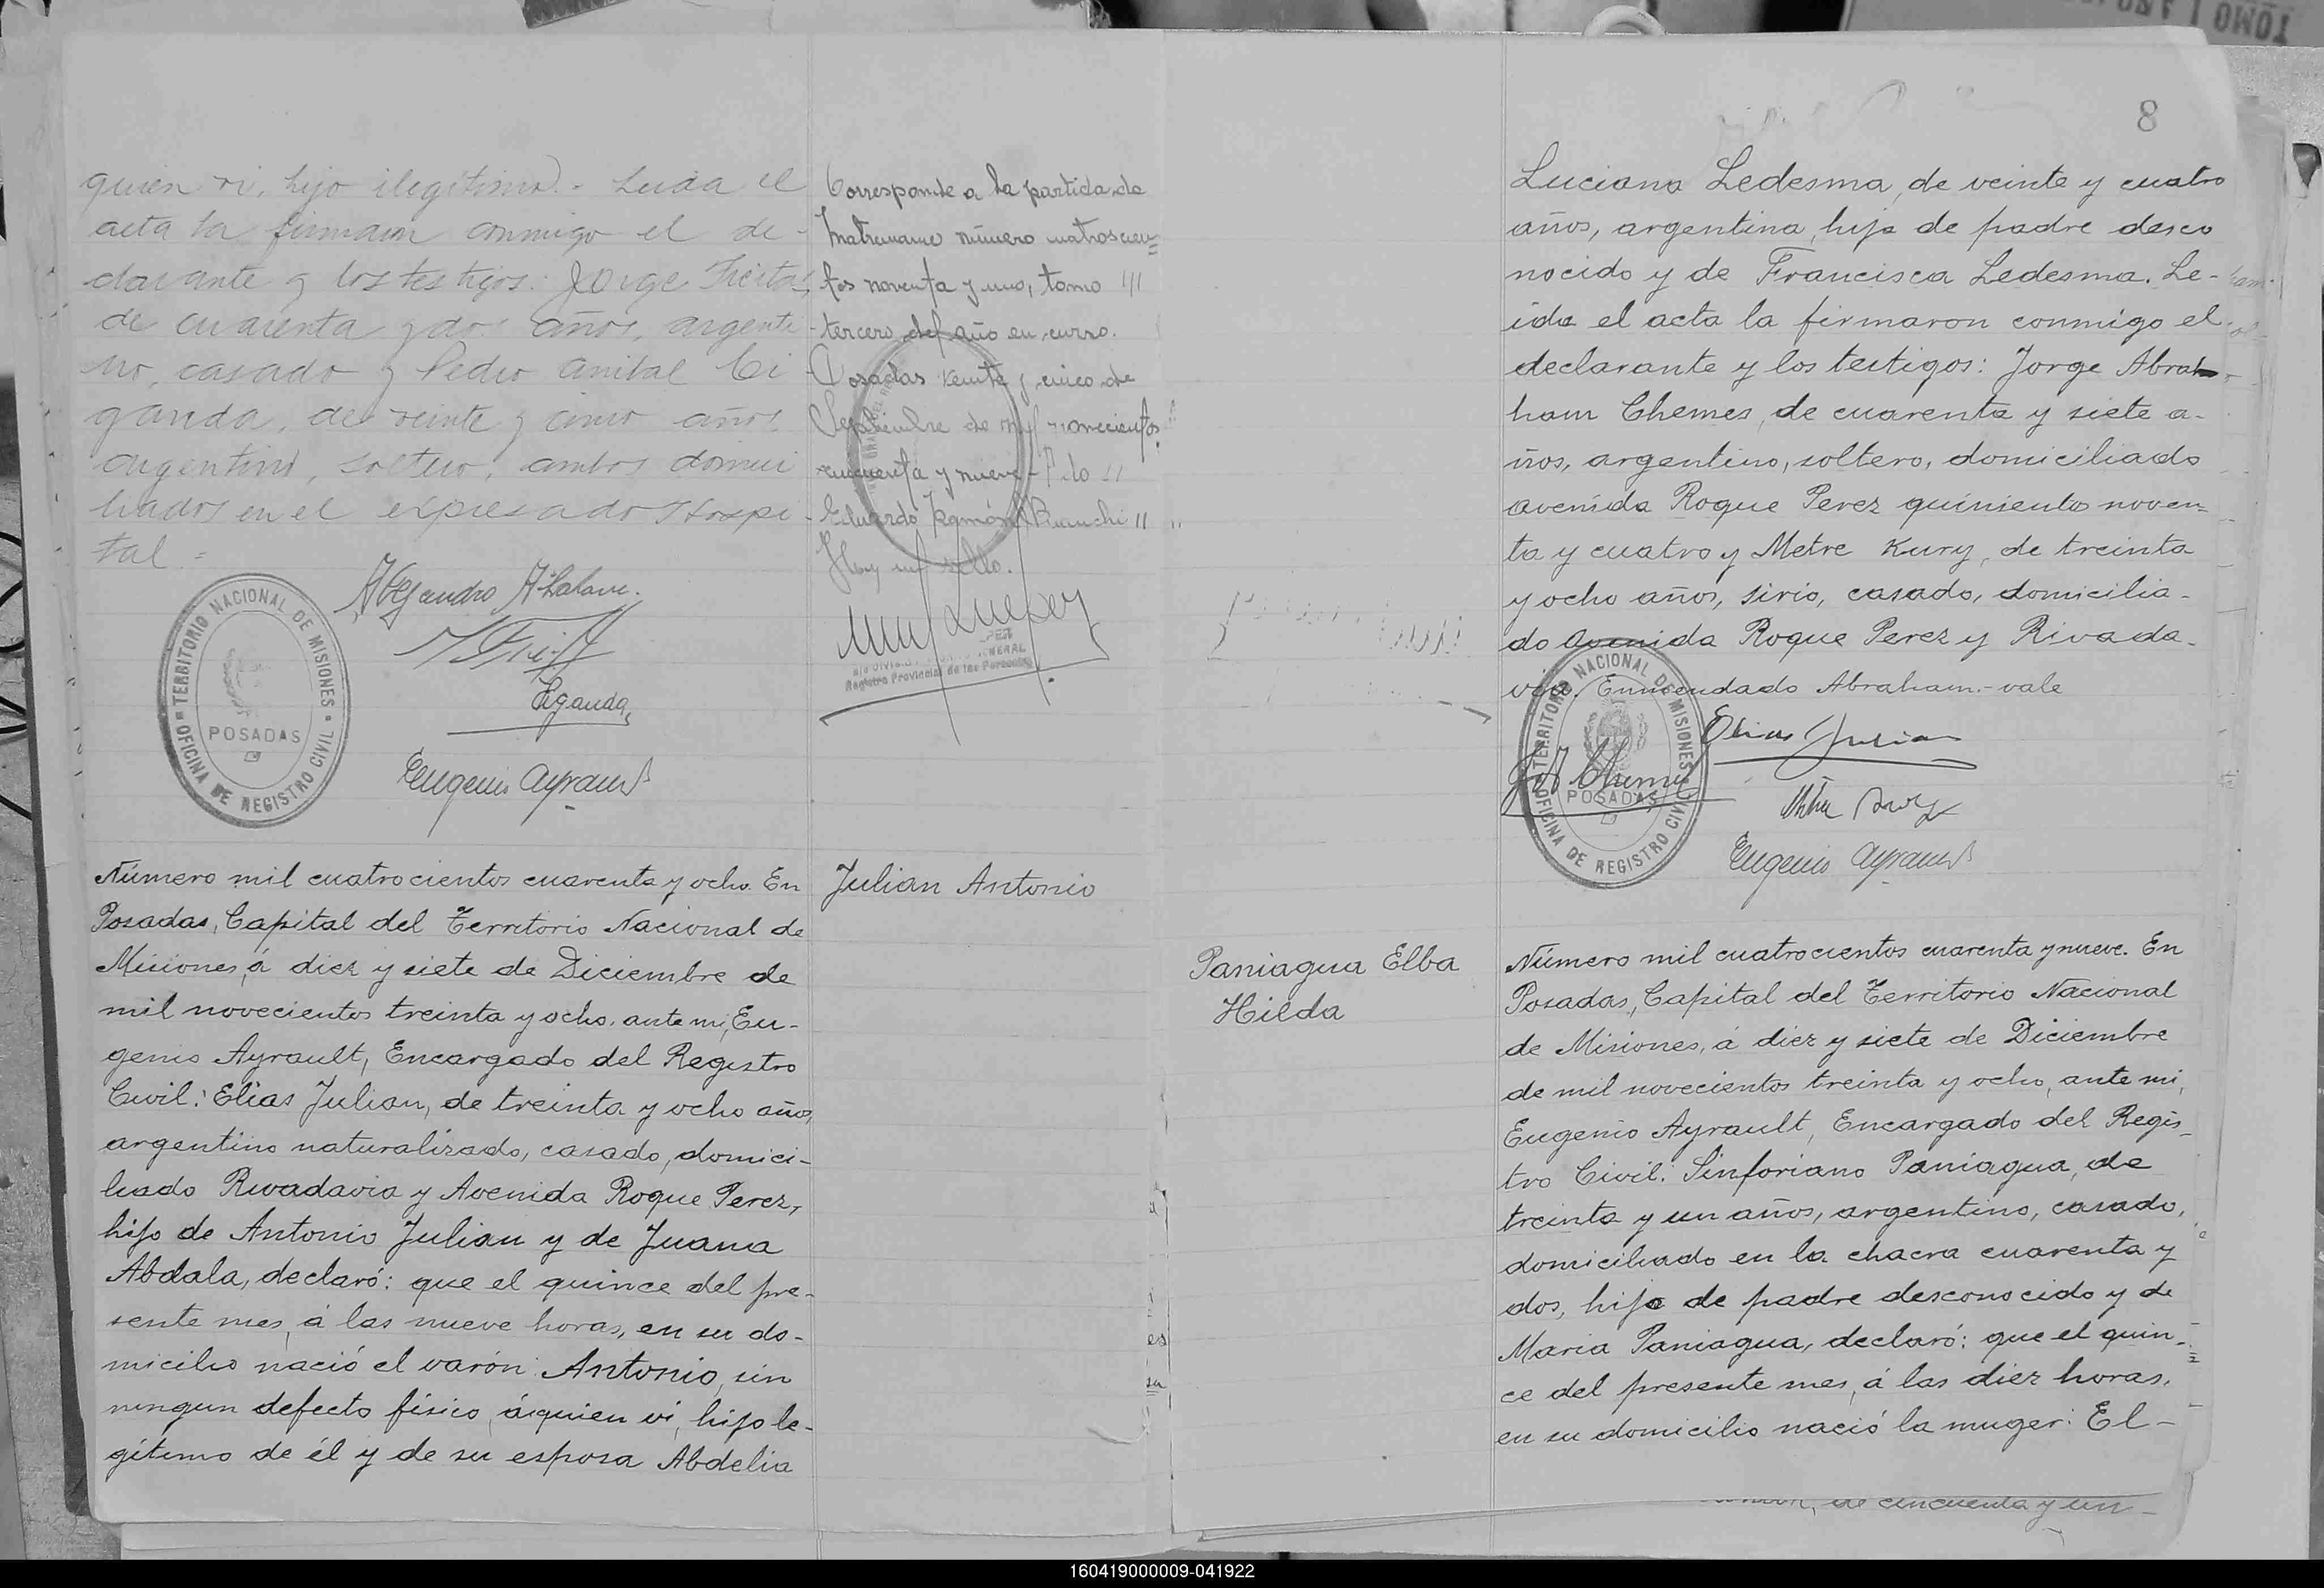 quien vi, hijo ilegitimo. - Leida el
acta la firmaron conmigo el de-
clarante y los testigos: Jorge Freitas,
de cuarenta y dos años, argenti-
no, casado y Pedro Anibal Ci
ganda, de veinte y cinco años,
argentino, soltero, ambos domici
liados en el expresado Hospi-
tal =
Eugenio Ayrault
TERRITORIO NACIONAL DE MISIONES
POSADAS
OFICINA DE REGISTRO CIVIL
Corresponde a la partida de
Matrimonio número cuatrocien=
tos noventa y uno, tomo III
tercero del año en curso.
Posadas veinte y cinco de
Septiembre de mil novecientos
cincuenta y nueve -
Eduardo Ramón Bianchi "
Hay un sello.
GENERAL
Registro Provincial de las Personas
Número mil cuatrocientos cuarenta y ocho. En
Posadas, Capital del Territorio Nacional de
Misiones, á diez y siete de Diciembre de
mil novecientos treinta y ocho, ante mi, Eu-
genio Ayrault, Encargado del Registro
Civil: Elias Julian, de treinta y ocho años,
argentino naturalizado, casado, domici-
liado Rivadavia y Avenida Roque Perez,
hijo de Antonio Julian y de Juana
Abdala, declaró: que el quince del pre-
sente mes, á las nueve horas, en su do-
micilio nació el varón: Antonio, sin
ningun defecto físico, á quien vi, hijo le-
gítimo de él y de su esposa Abdelia
Julian Antonio
8
Luciana Ledesma, de veinte y cuatro
años, argentina, hija de padre desco
nocido y de Francisca Ledesma. Le-
ida el acta la firmaron conmigo el
declarante y los testigos: Jorge Abra
ham Chemes, de cuarenta y siete a-
ños, argentino, soltero, domiciliado
avenida Roque Perez quinientos noven=
ta y cuatro y Metre Kury, de treinta
y ocho años, sirio, casado, domicilia-
do avenida Roque Perez y Rivada-
via. Enmendado Abraham.-vale
Elias Julian
J A Chemes
Eugenio Ayrault
TERRITORIO NACIONAL DE MISIONES
POSADAS
OFICINA DE REGISTRO CIVIL
Paniagua Elba
Hilda
Número mil cuatrocientos cuarenta y nueve. En
Posadas, Capital del Territorio Nacional
de Misiones, á diez y siete de Diciembre
de mil novecientos treinta y ocho, ante mi,
Eugenio Ayrault, Encargado del Regis-
tro Civil: Sinforiano Paniagua, de
treinta y un años, argentino, casado,
domiciliado en la chacra cuarenta y
dos, hijo de padre desconocido y de
Maria Paniagua, declaró: que el quin-
ce del presente mes, á las diez horas,
en su domicilio nació la muger: El-
de cincuenta y un
160419000009-041922